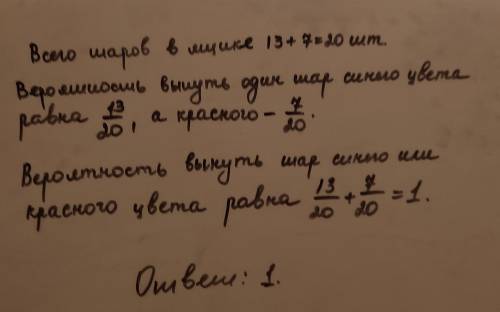 Всего шаров в ящике 13 + 7 = 20 шт.
Вероятность вынуть один шар синего цвета
равна 13/20, а красного - 7/20.
Вероятность вынуть шар синего или
красного цвета равна 13/20 + 7/20 = 1.
Ответ: 1.